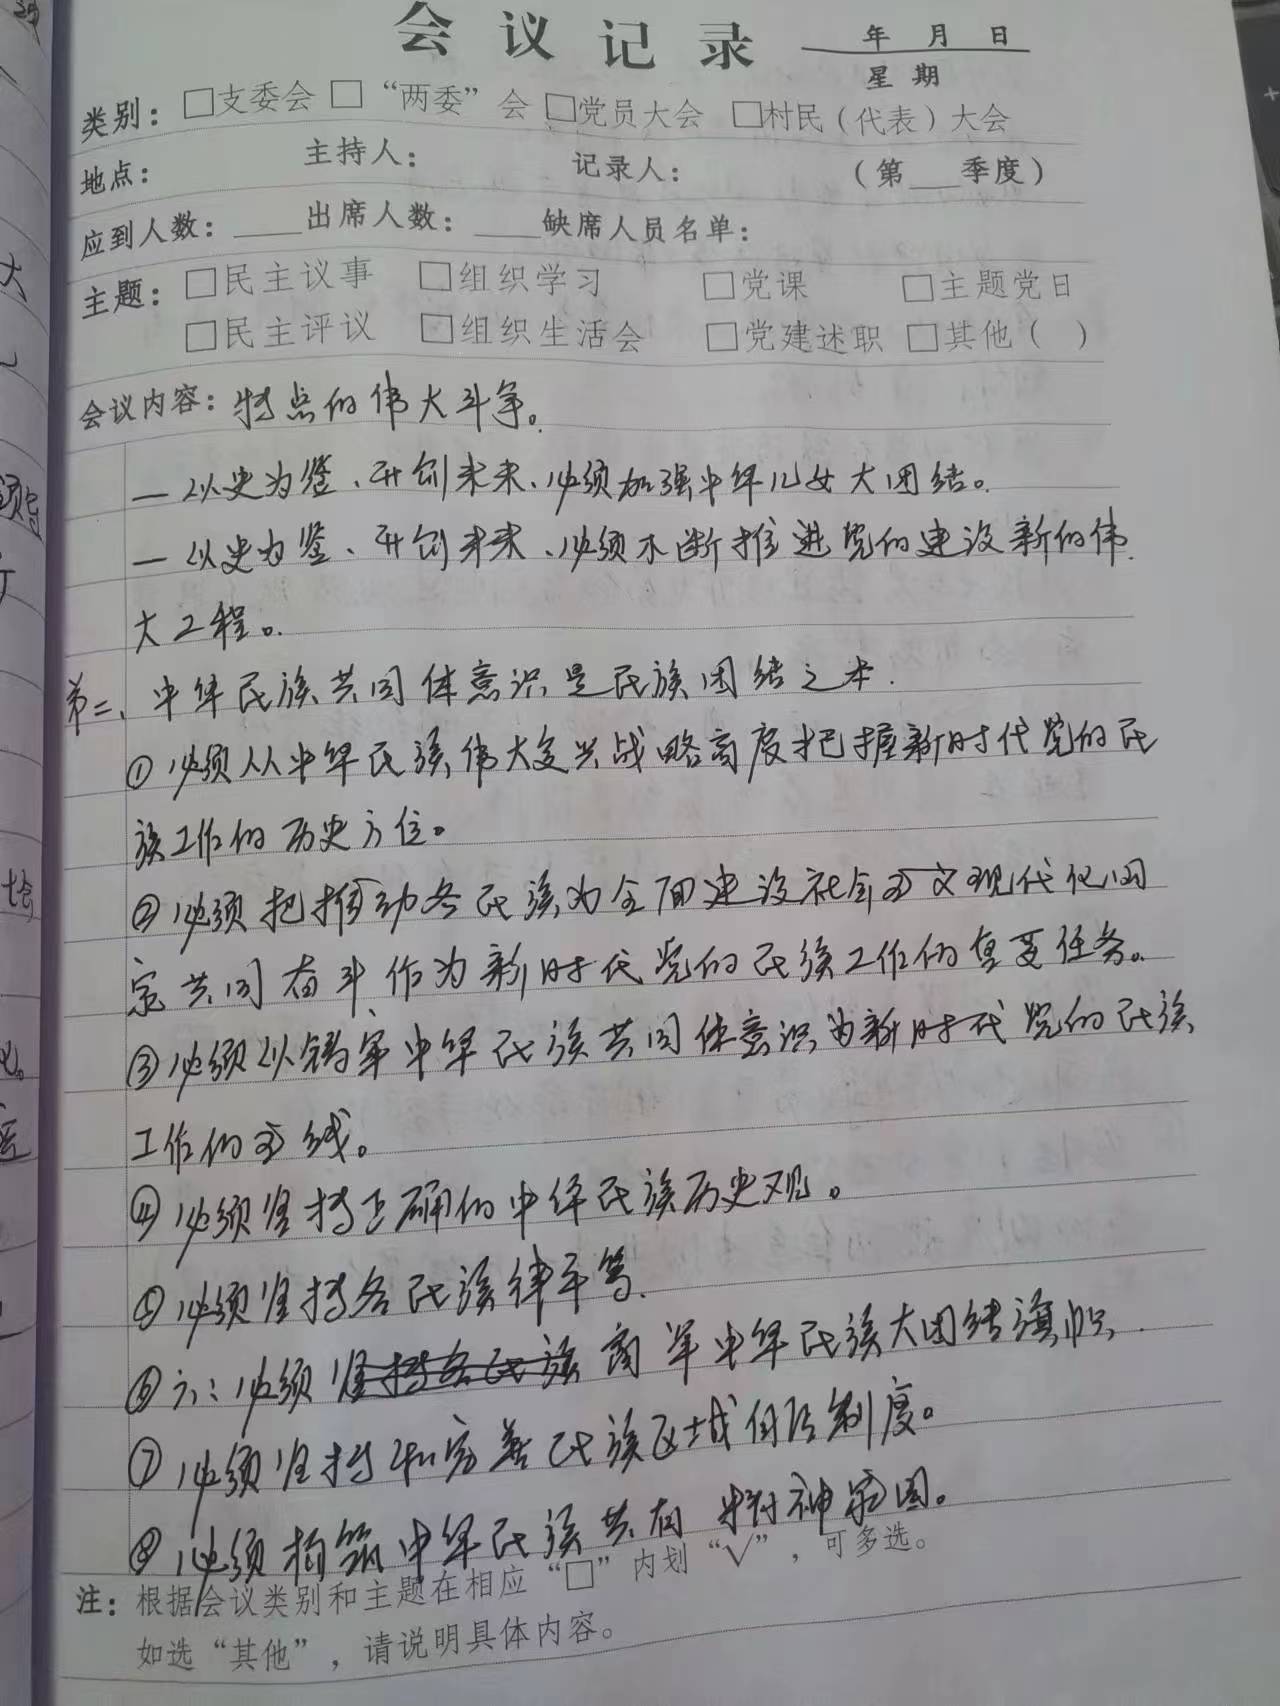 会议记录 年 月 日
星期
类别：□支委会 □“两委”会 □党员大会 □村民（代表）大会
地点： 主持人： 记录人： （第___季度）
应到人数：____出席人数：____缺席人员名单：
主题：□民主议事 □组织学习 □党课 □主题党日
□民主评议 □组织生活会 □党建述职 □其他（ ）
会议内容：特点的伟大斗争。
一以史为鉴、开创未来、必须加强中华儿女大团结。
一以史为鉴、开创未来、必须不断推进党的建设新的伟
大工程。
第二、中华民族共同体意识是民族团结之本.
①必须从中华民族伟大复兴战略高度把握新时代党的民
族工作的历史方位。
②必须把推动各民族为全面建设社会主义现代化国
家共同奋斗作为新时代党的民族工作的重要任务。
③必须以铸牢中华民族共同体意识为新时代党的民族
工作的主线。
④必须坚持正确的中华民族历史观。
⑤必须坚持各民族律平等.
⑥六：必须坚持各民族高举中华民族大团结旗帜.
⑦必须坚持和完善民族区域自治制度。
⑧必须构筑中华民族共有精神家园。
注：根据会议类别和主题在相应“□”内划“√”，可多选。
如选“其他”，请说明具体内容。